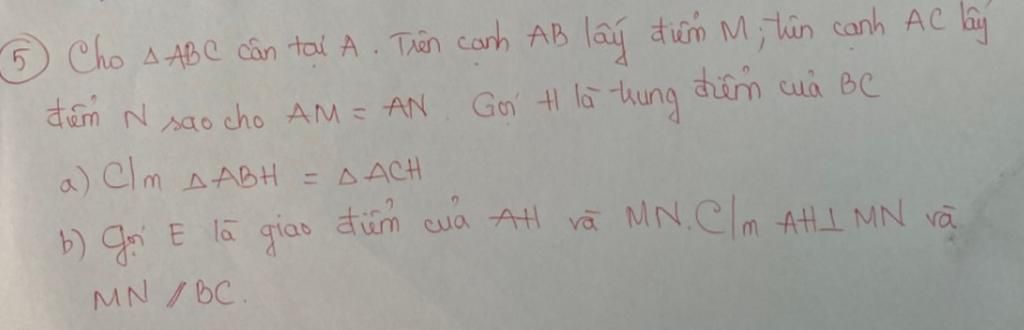 ⑤ Cho △ABC cân tại A. Trên cạnh AB lấy điểm M; trên cạnh AC lấy
điểm N sao cho AM = AN. Gọi H là trung điểm của BC
a) C/m △ABH = △ACH
b) gọi E là giao điểm của AH và MN. C/m AH⊥MN và
MN // BC.